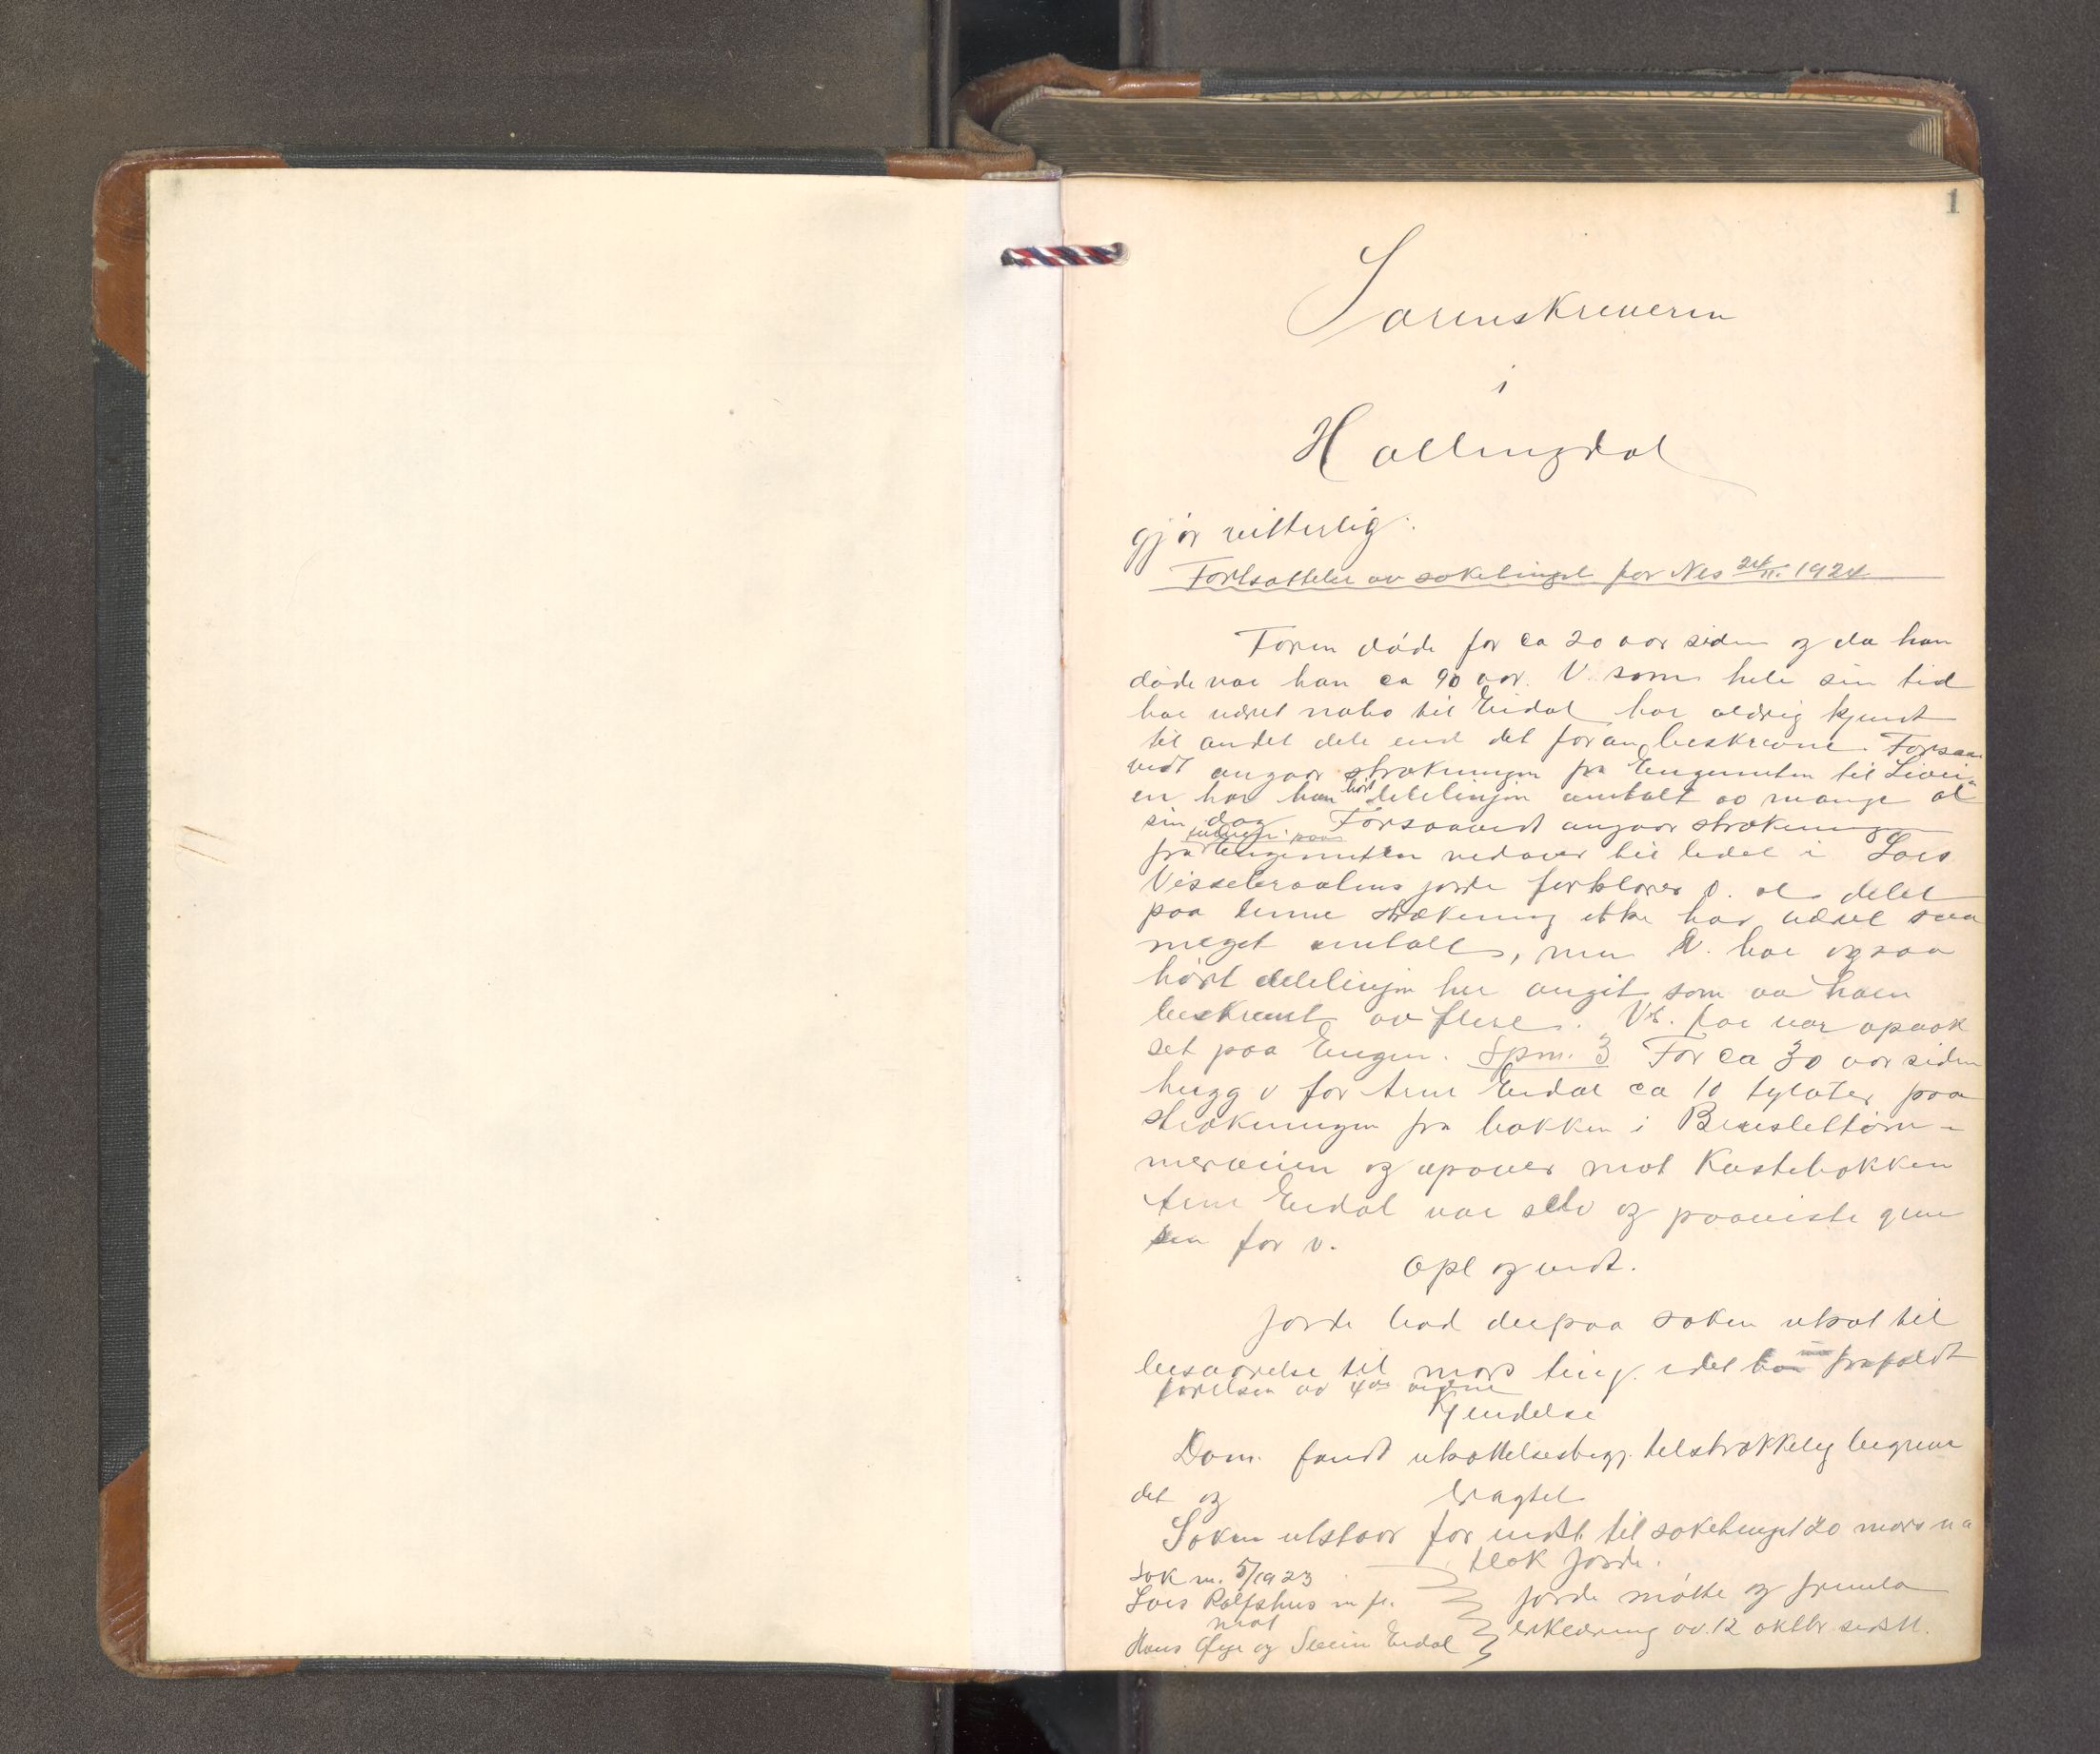 1
Sorenskriveren
i
Hallingdal
gjør vitterlig:
Fortsættelse av saketinget for Nes 24/11. 1924
Faren døde for ca 20 aar siden og da han
døde var han ca 90 aar. V. som hele sin tid
har været nabo til Eidal har aldrig kjendt
til andet dele end det foran beskrevne. Forsaa
vidt angaar strækningen fra Engenuten til Livei-
en har han hørt delelinjen omtalt av mange al
sin dag. Forsaavidt angaar strækningen
fra Engenuten nedover til ledet i Lars
Visslebraatens jorde forklarer v. at delet
paa denne strækning ikke har været saa
meget omtalt, men V. har ogsaa
hørt delelinjen her angit som av ham
beskrevet av flere. Vs. far var opvok
set paa Engen. Spm. 3 For ca 30 aar siden
hugg v for Arne Eidal ca 10 tylvter paa
strækningen fra bakken i Breislettøm-
merveien og opover mot Kastebakken
Arne Eidal var selv og paaviste gren
sen for v.
Opl og vedt.
Jorde bad derpaa saken utsat til
besvarelse til mars ting, idet han frafaldt
førelsen av 4de vidne
Kjendelse
Dom. fandt utsættelsesbegj. tilstrækkelig begrun
det og
bragtet
Saken utstaar for vidst til saketinget 20 mars n a
Sak nr. 5/1923
Lars Rolfshus m fl.
mot
Hans Øye og Svein Eidal
Jorde møtte og fremla
erklæring av 12 oktbr sidstl.